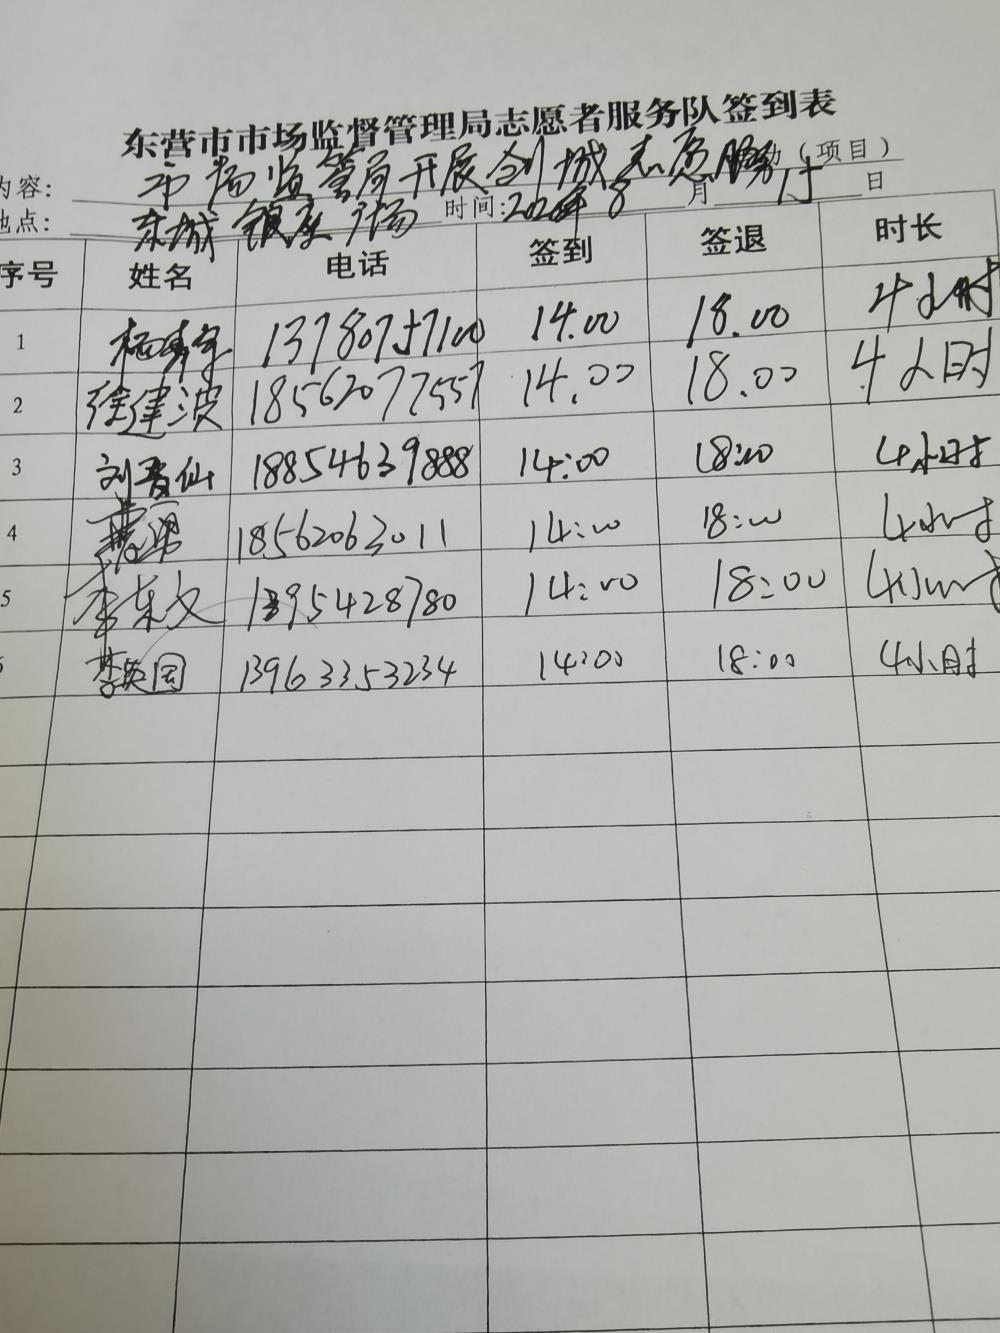 东营市市场监督管理局志愿者服务队签到表
内容: 市场监管局开展创城志愿服务 动（项目）
地点: 东城银座广场 时间: 8 月 15 日
序号 姓名 电话 签到 签退 时长
1 13780757100 14.00 18.00 4小时
2 徐建波 18562077557 14.00 18.00 4小时
3 刘晋仙 18854639888 14:00 18:00 4小时
4 18562063011 14:00 18:00 4小时
5 李东文 1395428780 14:00 18:00 4小时
6 李英国 13963353234 14:00 18:00 4小时